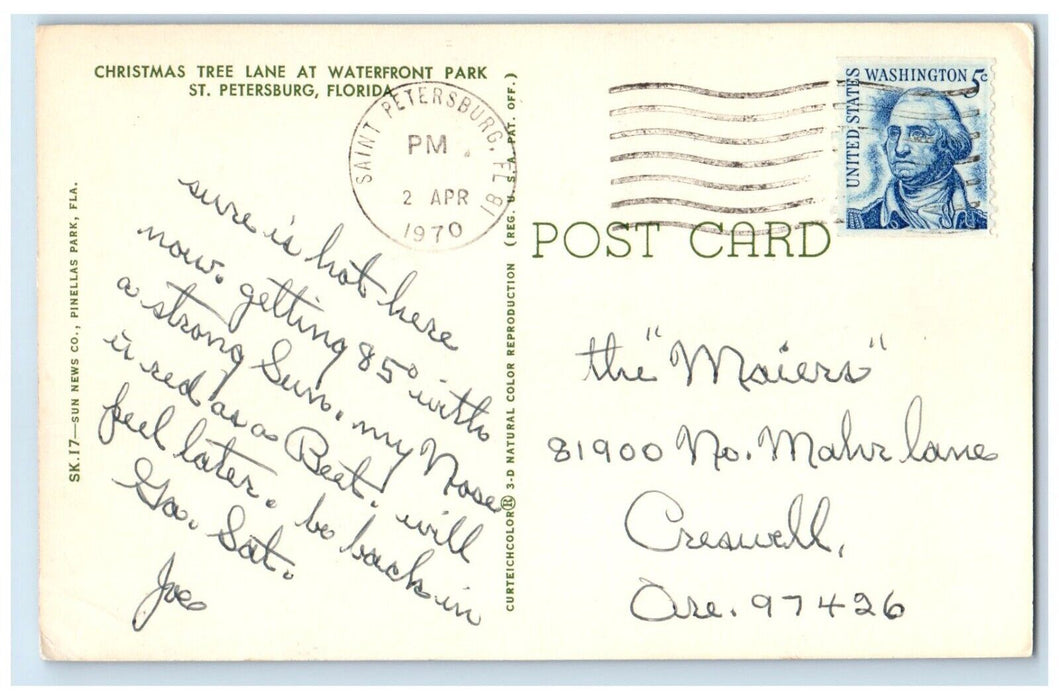 CHRISTMAS TREE LANE AT WATERFRONT PARK
ST. PETERSBURG, FLORIDA
SK.17—SUN NEWS CO., PINELLAS PARK, FLA.
SAINT PETERSBURG, FL 81
PM
2 APR
1970
CURTEICHCOLOR® 3-D NATURAL COLOR REPRODUCTION (REG. U.S.A. PAT. OFF.)
UNITED STATES
WASHINGTON 5c
POST CARD
sure is hot here
now. getting 85° with
a strong Sun. my Nose
is red as a Beet. will
peel later. be back in
Ga. Sat.
Joe
the "Maiers"
81900 No. Mahr lane
Creswell,
Ore. 97426